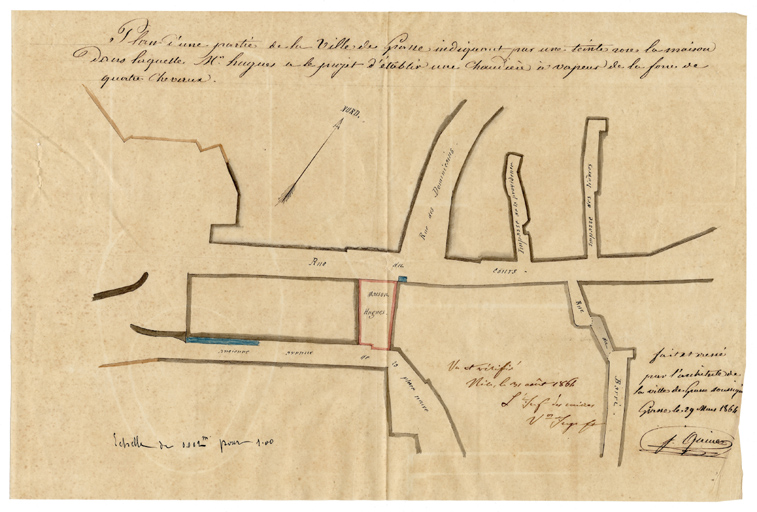 Plan d'une partie de la Ville de Grasse indiquant par une teinte rose la maison
Dans laquelle Mr. hugues a le projet d'établir une Chaudière à vapeur de la force de
quatre chevaux.
NORD.
Rue du Dominicains
Impasse de la Providence
Impasse des
Rue du cours
maison
hugues
Rue
avenue de la place neuve
Vu et vérifié
Nice, le 31 août 1864
fait et dressé
par l'architecte de
la ville de Grasse soussigné
Grasse le 29 Mars 1864
Echelle de pour 1.00